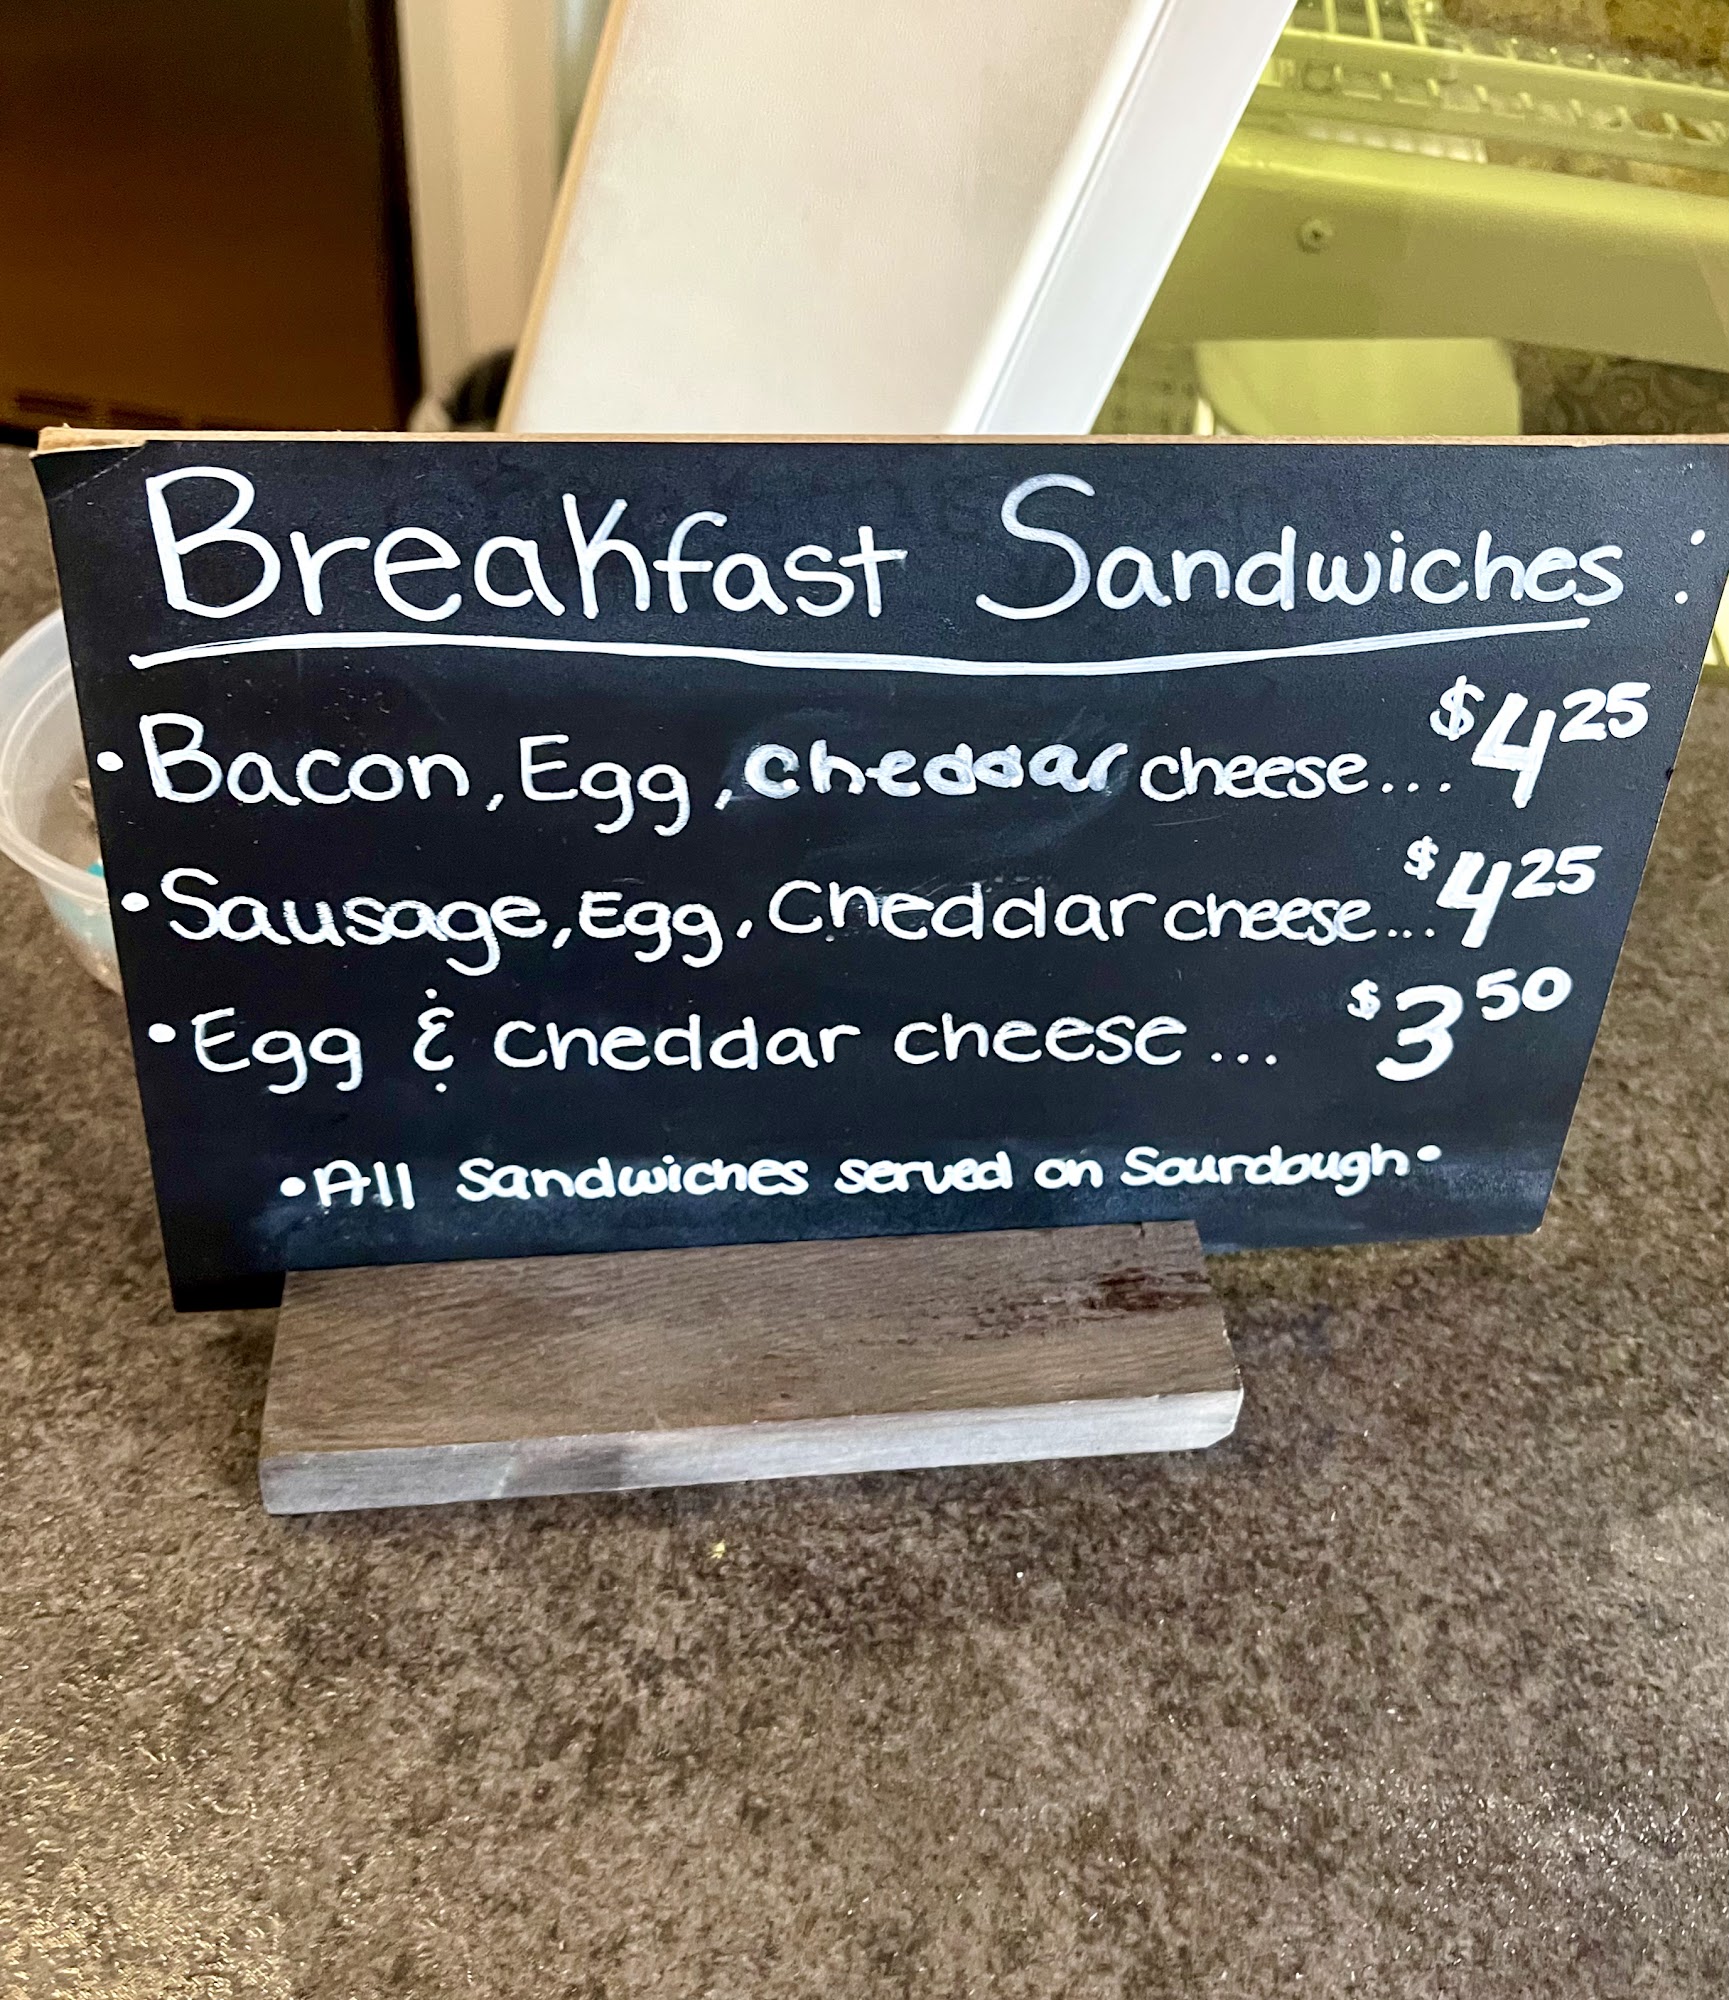 Breakfast Sandwiches:
• Bacon, Egg, cheddar cheese... $4.25
• Sausage, Egg, Cheddar cheese... $4.25
• Egg & Cheddar cheese... $3.50
• All Sandwiches served on Sourdough •